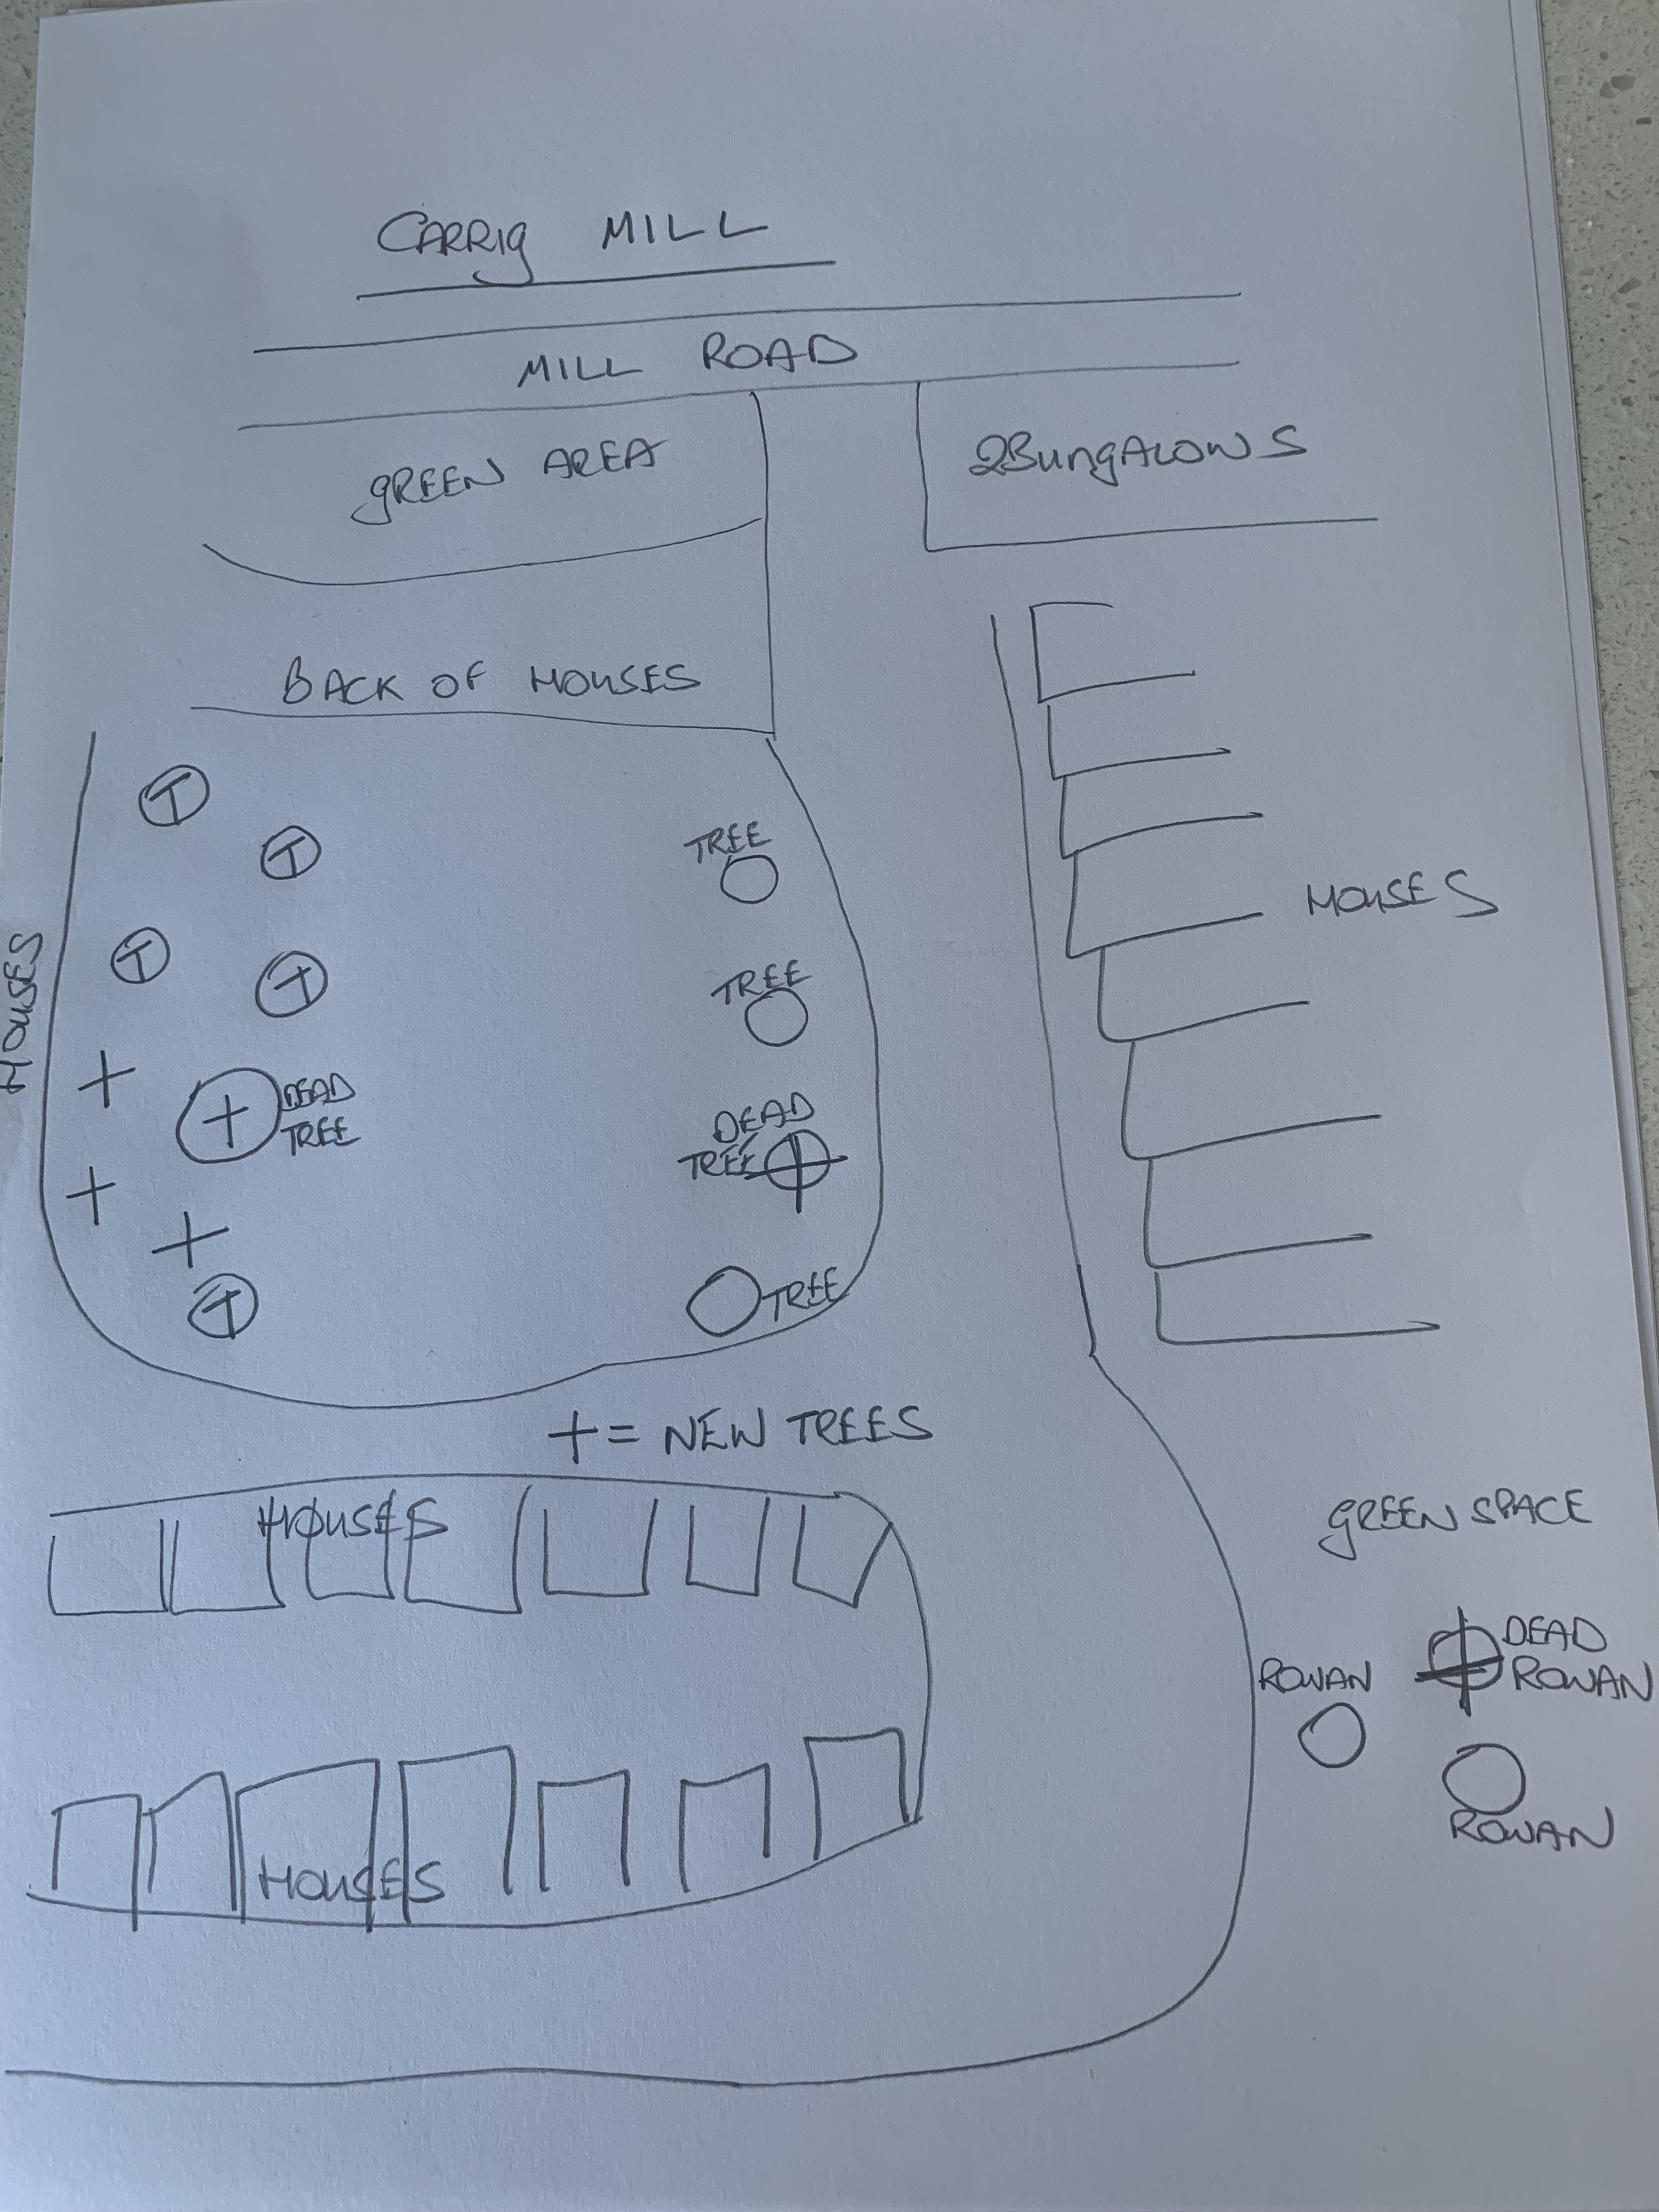 CARRIG MILL
MILL ROAD
GREEN AREA
2 BUNGALOWS
BACK OF HOUSES
T
T
TREE
HOUSES
HOUSES
T
T
TREE
+
+ DEAD
TREE
DEAD
TREE
+
+
T
TREE
+ = NEW TREES
HOUSES
GREEN SPACE
DEAD
ROWAN
ROWAN
ROWAN
HOUSES